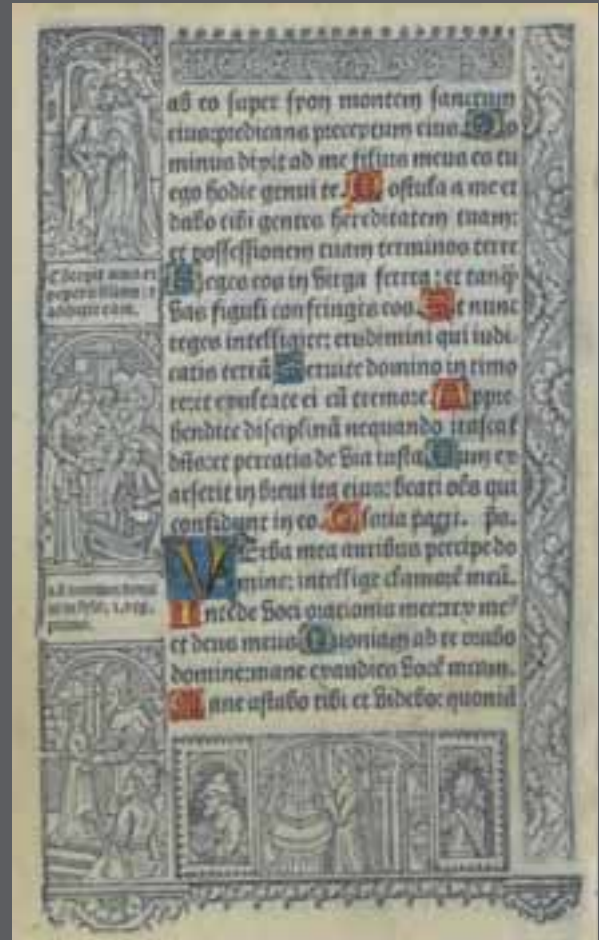 ab eo super syon montem sanctum
eius: predicans preceptum eius. Do
minus dixit ad me filius meus es tu
ego hodie genui te. Postula a me et
dabo tibi gentes hereditatem tuam:
et possessionem tuam terminos terre
Reges eos in virga ferrea: et tanq̃
vas figuli confringes eos. Et nunc
reges intelligite: erudimini qui iudi
catis terrã Seruite domino in timo
re: et exultate ei cũ tremore. Appre
hendite disciplinã nequando irascat
dñs: et pereatis de via iusta Cum ex
arserit in breui ira eius: beati oẽs qui
confidunt in eo. Gloria patri. ps.
VErba mea auribus percipe do
mine: intellige clamorẽ meũ.
Intẽde voci orationis mee: rex me⁹
et deus meus Quoniam ad te orabo
domine: mane exaudies vocẽ meam.
Mane astabo tibi et videbo: quoniã